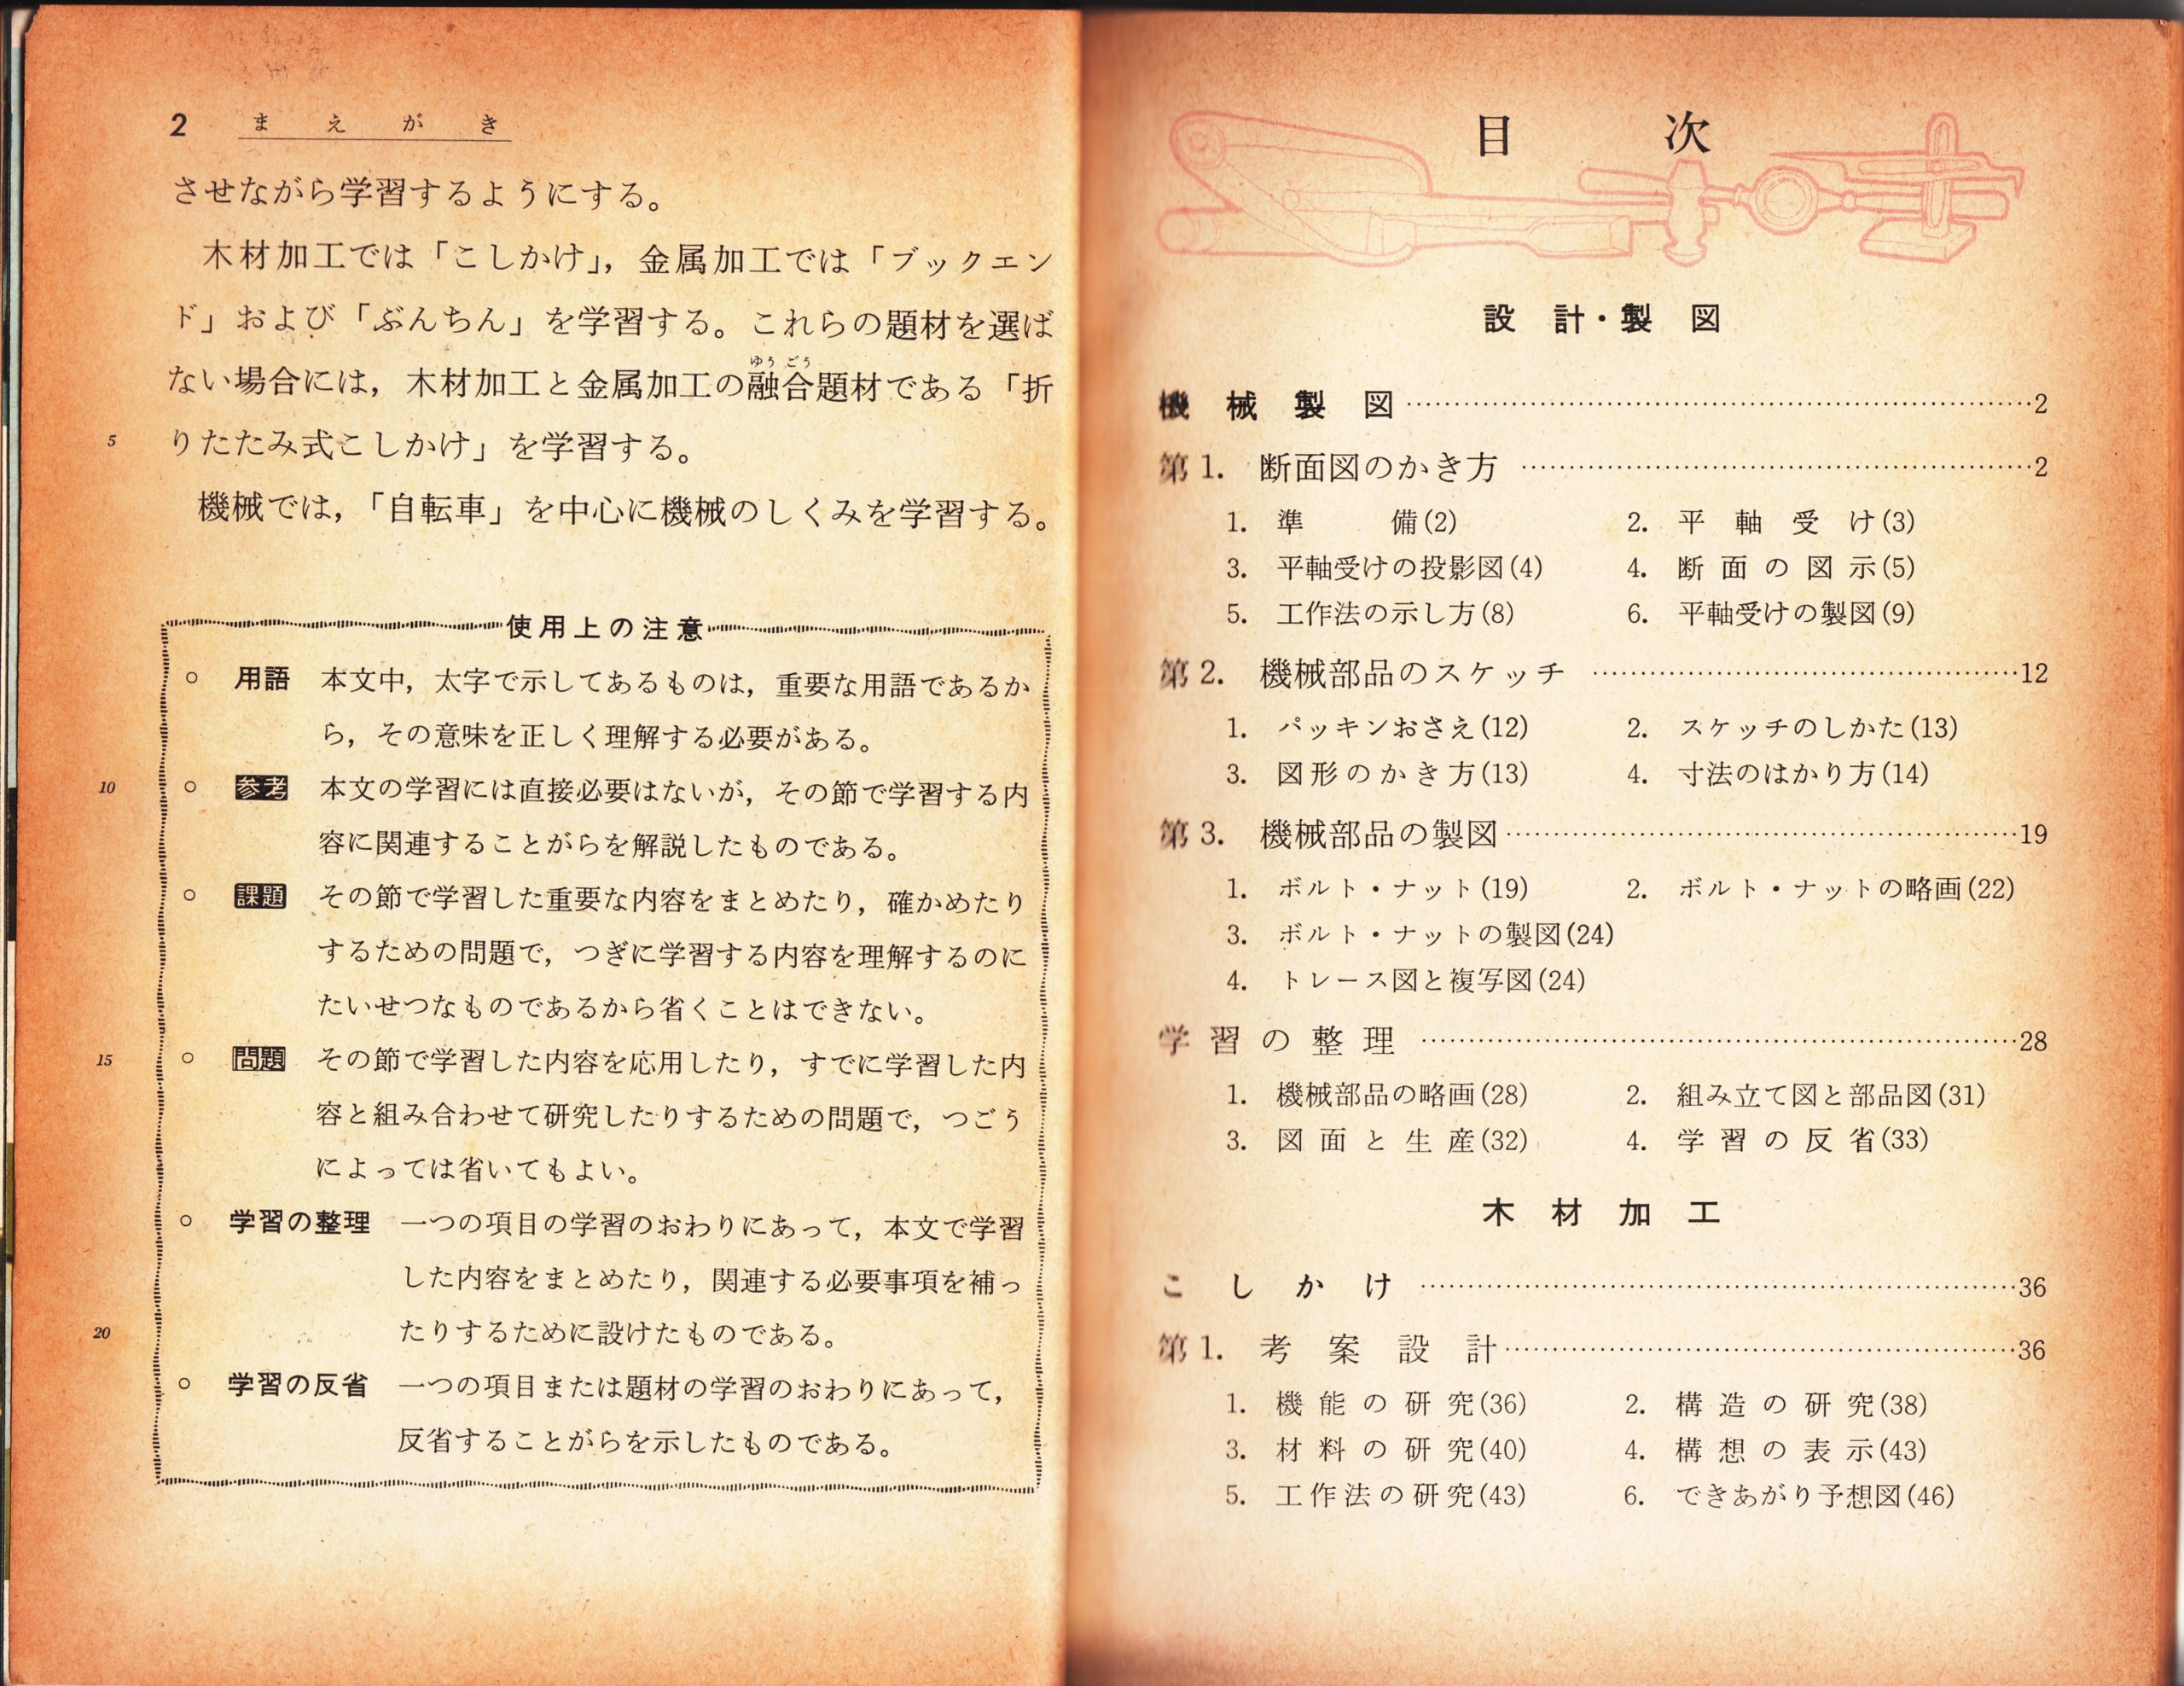 2 まえがき
させながら学習するようにする。
木材加工では「こしかけ」，金属加工では「ブックエン
ド」および「ぶんちん」を学習する。これらの題材を選ば
ゆうごう
ない場合には，木材加工と金属加工の融合題材である「折
5 りたたみ式こしかけ」を学習する。
機械では，「自転車」を中心に機械のしくみを学習する。
使用上の注意
○ 用語 本文中，太字で示してあるものは，重要な用語であるか
ら，その意味を正しく理解する必要がある。
10 ○ 参考 本文の学習には直接必要はないが，その節で学習する内
容に関連することがらを解説したものである。
○ 課題 その節で学習した重要な内容をまとめたり，確かめたり
するための問題で，つぎに学習する内容を理解するのに
たいせつなものであるから省くことはできない。
15 ○ 問題 その節で学習した内容を応用したり，すでに学習した内
容と組み合わせて研究したりするための問題で，つごう
によっては省いてもよい。
○ 学習の整理 一つの項目の学習のおわりにあって，本文で学習
した内容をまとめたり，関連する必要事項を補っ
20 たりするために設けたものである。
○ 学習の反省 一つの項目または題材の学習のおわりにあって，
反省することがらを示したものである。
目次
設計・製図
機械製図……2
第1. 断面図のかき方……2
1. 準備(2) 2. 平軸受け(3)
3. 平軸受けの投影図(4) 4. 断面の図示(5)
5. 工作法の示し方(8) 6. 平軸受けの製図(9)
第2. 機械部品のスケッチ……12
1. パッキンおさえ(12) 2. スケッチのしかた(13)
3. 図形のかき方(13) 4. 寸法のはかり方(14)
第3. 機械部品の製図……19
1. ボルト・ナット(19) 2. ボルト・ナットの略画(22)
3. ボルト・ナットの製図(24)
4. トレース図と複写図(24)
学習の整理……28
1. 機械部品の略画(28) 2. 組み立て図と部品図(31)
3. 図面と生産(32) 4. 学習の反省(33)
木材加工
こしかけ……36
第1. 考案設計……36
1. 機能の研究(36) 2. 構造の研究(38)
3. 材料の研究(40) 4. 構想の表示(43)
5. 工作法の研究(43) 6. できあがり予想図(46)